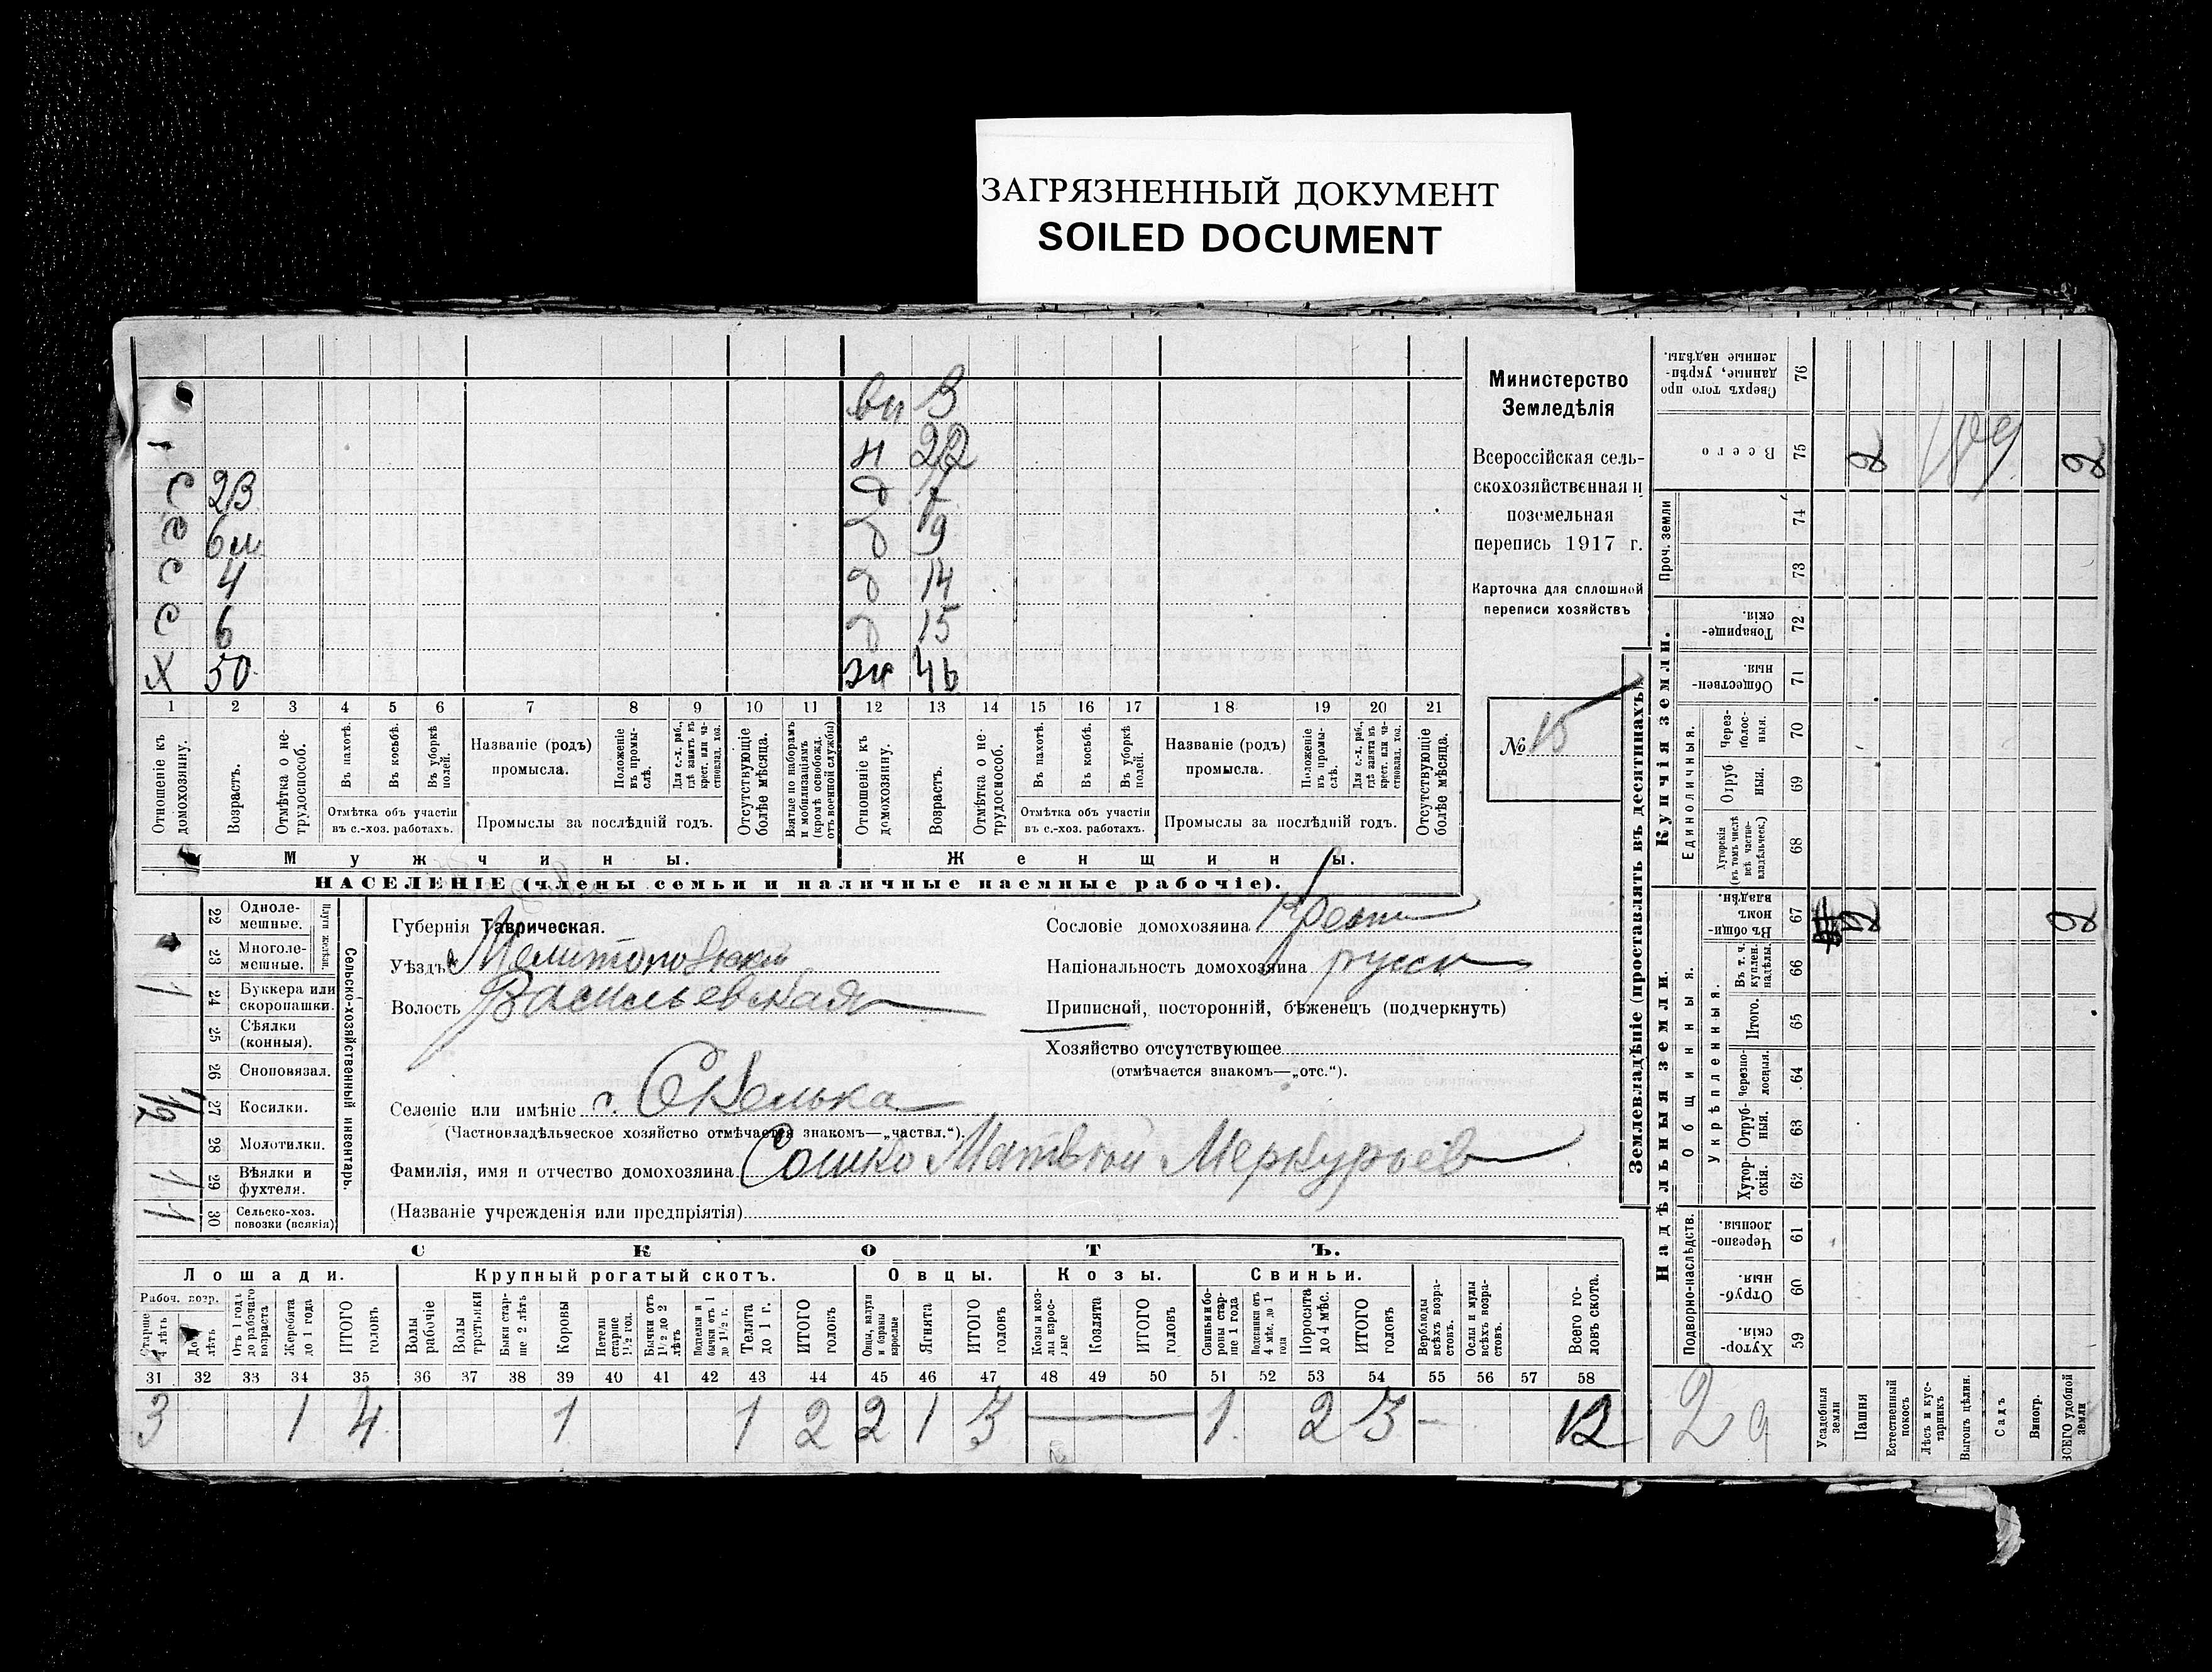 ЗАГРЯЗНЕННЫЙ ДОКУМЕНТ
SOILED DOCUMENT
Министерство
Земледѣлія
Всероссійская сель-
скохозяйственная и
поземельная
перепись 1917 г.
Карточка для сплошной
переписи хозяйствъ
№ 15
вн 3
н 22
С 23 д
д 6м д 9
С 4 д 14
С 6 д 15
Х 50 ж 46
1 2 3 4 5 6 7 8 9 10 11 12 13 14 15 16 17 18 19 20 21
Отношеніе къ домохозяину.
Возрастъ.
Отмѣтка о не-трудоспособ.
Въ пахотѣ.
Въ косьбѣ.
Въ уборкѣ полей.
Отмѣтка объ участіи
въ с.-хоз. работахъ.
Названіе (родъ)
промысла.
Положеніе въ промы-слѣ.
Для с.-х. раб., гдѣ занятъ въ крест. или ча-стновлад. хоз.
Промыслы за послѣдній годъ.
Отсутствующіе болѣе мѣсяца.
Взятые по наборамъ и мобилизаціямъ (кромѣ освобожд. отъ военной службы)
Отношеніе къ домохозяину.
Возрастъ.
Отмѣтка о не-трудоспособ.
Въ пахотѣ.
Въ косьбѣ.
Въ уборкѣ полей.
Отмѣтка объ участіи
въ с.-хоз. работахъ.
Названіе (родъ)
промысла.
Положеніе въ промы-слѣ.
Для с.-х. раб., гдѣ занятъ въ крест. или ча-стновлад. хоз.
Промыслы за послѣдній годъ.
Отсутствующіе болѣе мѣсяца.
Мужчины. Женщины.
НАСЕЛЕНІЕ (члены семьи и наличные наемные рабочіе).
22 Одноле-мешные.
23 Многоле-мешные.
24 Буккера или скоропашки. 1
25 Сѣялки (конныя).
26 Сноповязал.
27 Косилки. 1/2
28 Молотилки.
29 Вѣялки и фухтеля. 1
30 Сельско-хоз. повозки (всякія) 1
Сельско-хозяйственный инвентарь.
Губернія Таврическая.
Уѣздъ Мелитопольскій
Волость Васильевская
Сословіе домохозяина Крест
Національность домохозяина русск
Приписной, посторонній, бѣженец (подчеркнуть)
Хозяйство отсутствующее
(отмѣчается знакомъ—„отс.“).
Селеніе или имѣніе с. Скелька
(Частновладѣльческое хозяйство отмѣчается знакомъ—„частвл.“).
Фамилія, имя и отчество домохозяина Сошко Матвѣй Меркурьев
(Названіе учрежденія или предпріятія)
СКОТЪ.
Лошади. Крупный рогатый скотъ. Овцы. Козы. Свиньи.
Рабоч. возр.
Старше 4 лѣтъ
До 4 лѣтъ
Отъ 1 года до рабочаго возраста
Жеребята до 1 года
ИТОГО головъ
Волы рабочіе
Волы третьяки
Быки стар-ше 2 лѣтъ
Коровы
Нетели старше 1½ год.
Бычки отъ 1½ до 2 лѣтъ
Подтелки и бычки отъ 1 до 1½ г.
Телята до 1 г.
ИТОГО головъ
Овцы, валухи и бараны взрослые
Ягнята
ИТОГО головъ
Козы и коз-лы взрос-лые
Козлята
ИТОГО головъ
Свиньи и бо-ровы стар-ше 1 года
Подсвинки отъ 4 мѣс. до 1 года
Поросята до 4 мѣс.
ИТОГО головъ
Верблюды всѣхъ возра-стовъ.
Ослы и мулы всѣхъ возра-стовъ.
Всего го-ловъ скота.
31 32 33 34 35 36 37 38 39 40 41 42 43 44 45 46 47 48 49 50 51 52 53 54 55 56 57 58
3 1 4 1 1 2 2 1 3 — 1 2 3 — 12
Землевладѣніе (проставлять въ десятинахъ).
Надѣльныя земли. Купчія земли. Проч. земли
Подворно-наслѣдств. Общинныя. Укрѣпленныя. Единоличныя.
76 Сверхъ того про данные, укрѣп-ленные надѣлы.
75 Всего 2 2
74
73
72 Товарище-скія.
71 Обществен-ныя.
70 Через-полос-ныя.
69 Отруб ныя.
68 Хуторскія (въ томъ числѣ всѣ частно-владѣльческ.)
67 Въ общи-нномъ владѣн. 2 2
66 Въ т. ч. куплен. надѣлы.
65 Итого.
64 Черезпо-лосныя.
63 Отруб-ныя.
62 Хутор-скія.
61 Черезпо-лосныя.
60 Отруб-ныя.
59 Хутор-скія.
Усадебныя земли
Пашня
Естественный покосъ
Лѣсъ и кус-тарникъ
Выгонъ цѣлин.
Садъ
Виногр.
ВСЕГО удобной земли